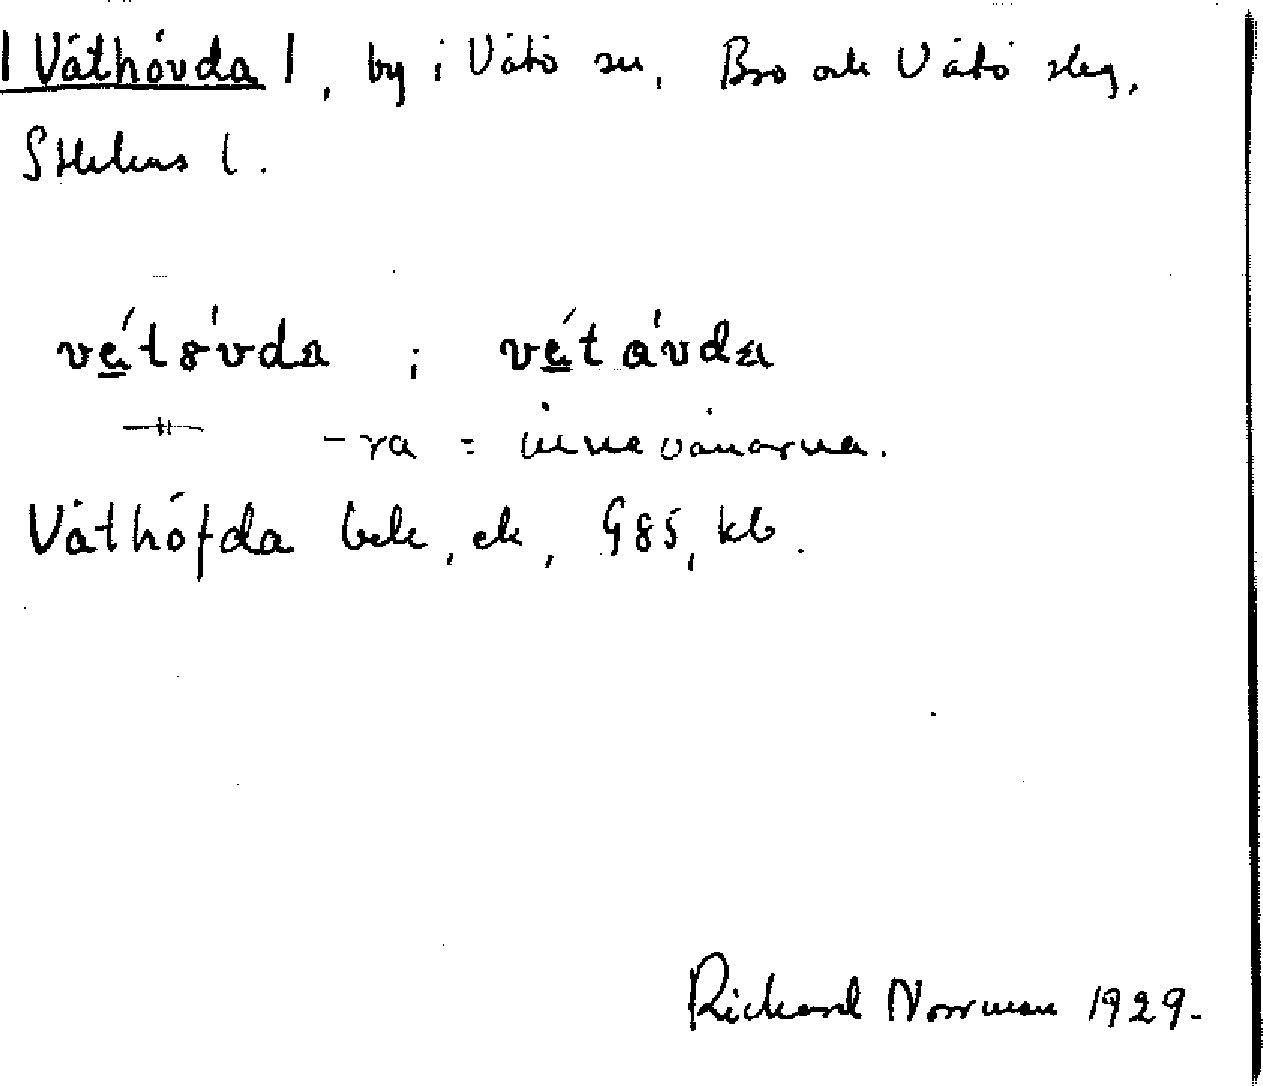 | Väthövda |, by i Vätö sn, Bro och Vätö skg,
Sthlms l.
vé̱tövda ; vé̱távda
–〃– -ra = innevånarna.
Väthöfda bek, ek, G85, kb.
Rickard Norrman 1929.